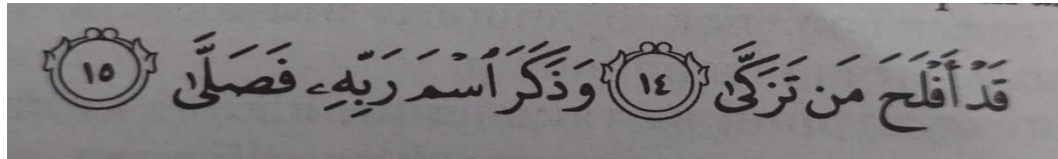 قَدْ أَفْلَحَ مَن تَزَكَّىٰ ١٤ وَذَكَرَ ٱسْمَ رَبِّهِۦ فَصَلَّىٰ ١٥